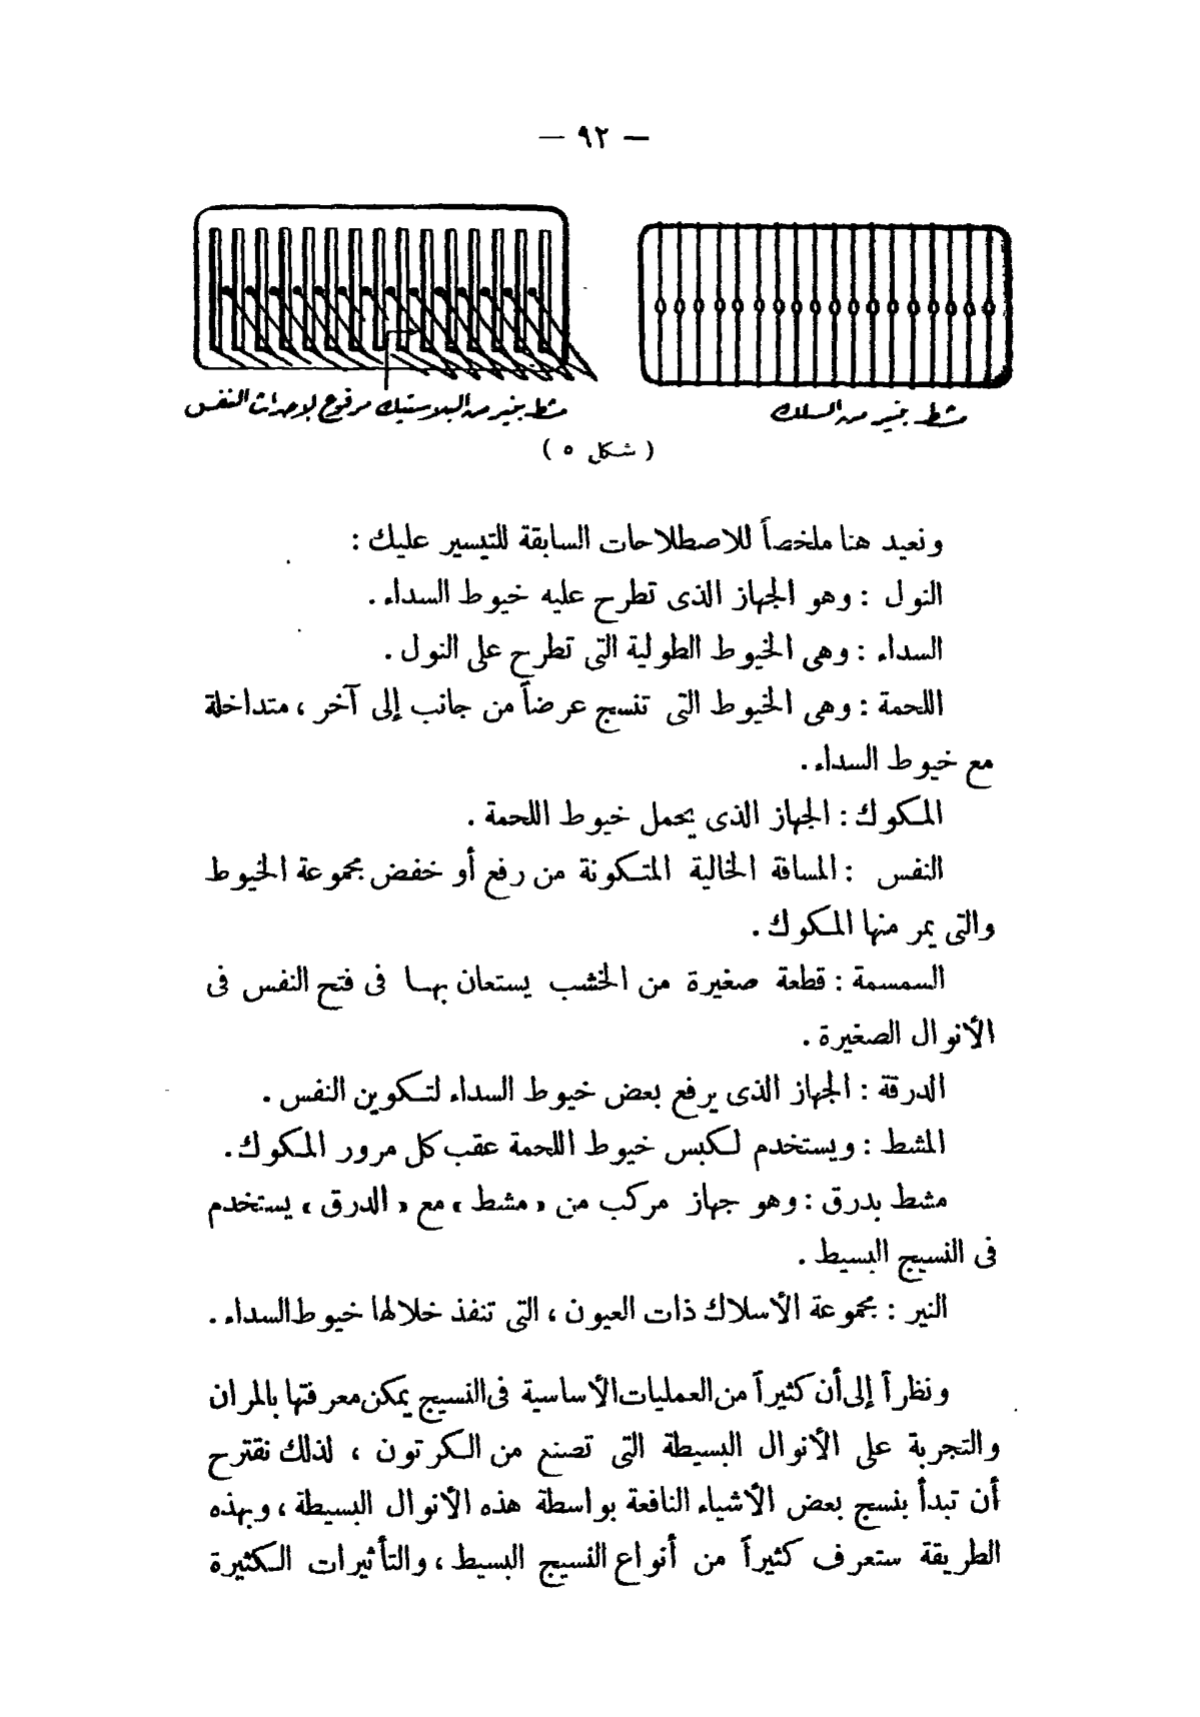 — ٩٢ —
مشط بنير من السلك
مشط بنير من البلاستيك مرفوع لإحداث النفس
( شكل ٥ )
ونعيد هنا ملخصاً للاصطلاحات السابقة للتيسير عليك :
النول : وهو الجهاز الذى تطرح عليه خيوط السداء .
السداء : وهى الخيوط الطولية التى تطرح على النول .
اللحمة : وهى الخيوط التى تنسج عرضاً من جانب إلى آخر ، متداخلة
مع خيوط السداء .
المكوك : الجهاز الذى يحمل خيوط اللحمة .
النفس : المسافة الخالية المتكونة من رفع أو خفض مجموعة الخيوط
والتى يمر منها المكوك .
السمسمة : قطعة صغيرة من الخشب يستعان بها فى فتح النفس فى
الأنوال الصغيرة .
الدرقة : الجهاز الذى يرفع بعض خيوط السداء لتكوين النفس .
المشط : ويستخدم لكبس خيوط اللحمة عقب كل مرور المكوك .
مشط بدرق : وهو جهاز مركب من « مشط » مع « الدرق » يستخدم
فى النسيج البسيط .
النير : مجموعة الأسلاك ذات العيون ، التى تنفذ خلالها خيوط السداء .
ونظراً إلى أن كثيراً من العمليات الأساسية فى النسيج يمكن معرفتها بالمران
والتجربة على الأنوال البسيطة التى تصنع من الكرتون ، لذلك نقترح
أن تبدأ بنسج بعض الأشياء النافعة بواسطة هذه الأنوال البسيطة ، وبهذه
الطريقة ستعرف كثيراً من أنواع النسيج البسيط ، والتأثيرات الكثيرة